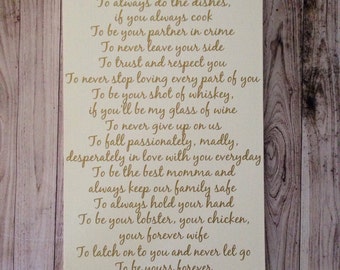 To always do the dishes,
if you always cook
To be your partner in crime
To never leave your side
To trust and respect you
To never stop loving every part of you
To be your shot of whiskey,
if you'll be my glass of wine
To never give up on us
To fall passionately, madly,
desperately in love with you everyday
To be the best momma and
always keep our family safe
To always hold your hand
To be your lobster, your chicken,
your forever wife
To latch on to you and never let go
To be yours forever